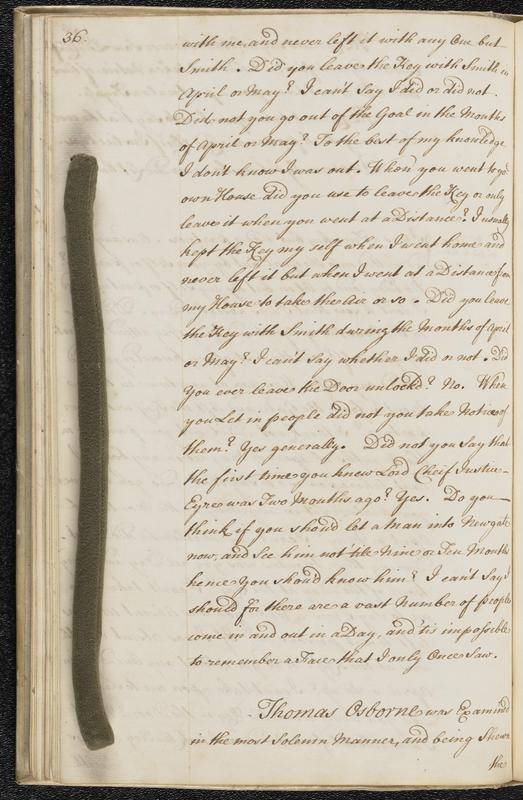 36.
with me, and never left it with any One but
Smith. Did you leave the Key with Smith in
April or May? I can't Say I did or did not.
Did not you go out of the Goal in the Months
of April or May? To the best of my knowledge
I don't know I was out. When you went to yo.r
own House did you use to leave the Key or only
leave it when you went at a Distance? I usually
kept the Key my self when I went home and
never left it but when I went at a Distance from
my House to take the Air or so. Did you leave
the Key with Smith during the Months of April
or May? I can't Say whether I did or not. Did
you ever leave the Door unlock'd? No. When
you Let in people did not you take Notice of
them? Yes generally. Did not you Say that
the first time you knew Lord Cheif Justice
Eyre was Two Months ago? Yes. Do you
think if you should let a Man into Newgate
now, and See him not 'till Nine or Ten Months
hence You should know him? I can't Say I
should for there are a vast Number of people
come in and out in a Day, and 'tis impossible
to remember a Face that I only Once Saw.
Thomas Osborne was Examined
in the most Solemn Manner, and being Shewn
the